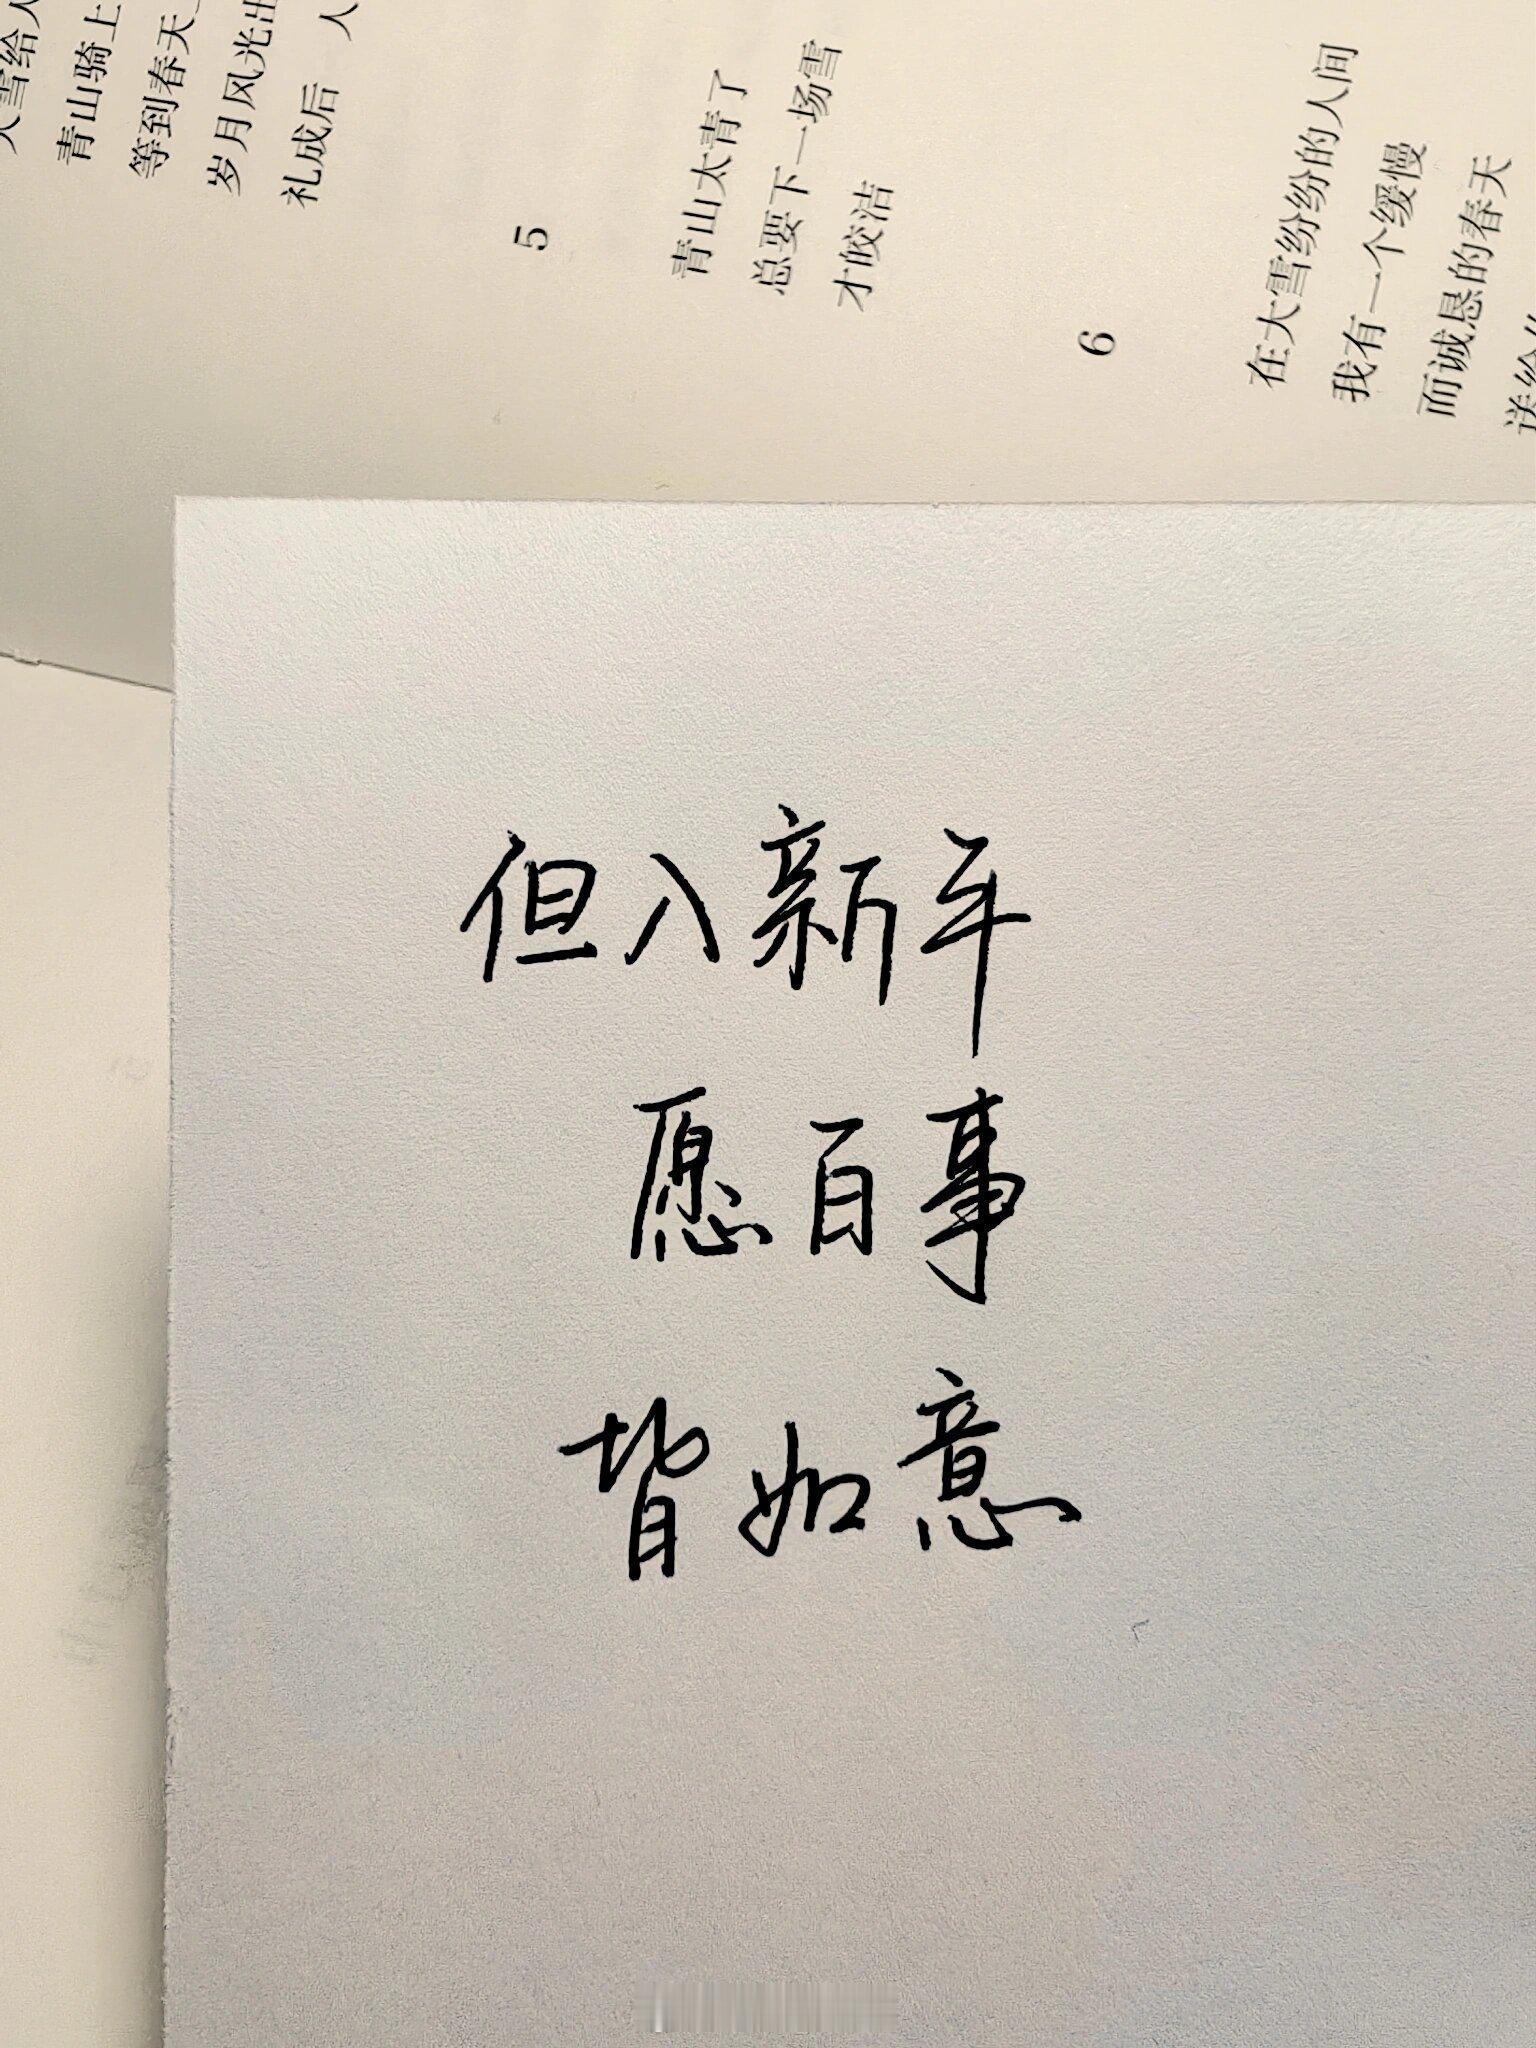 大雪给人
青山骑上
等到春天
岁月风光出
礼成后 人
5
青山太青了
总要下一场雪
才皎洁
6
在大雪纷纷的人间
我有一个缓慢
而诚恳的春天
送给
但入新年
愿百事
皆如意